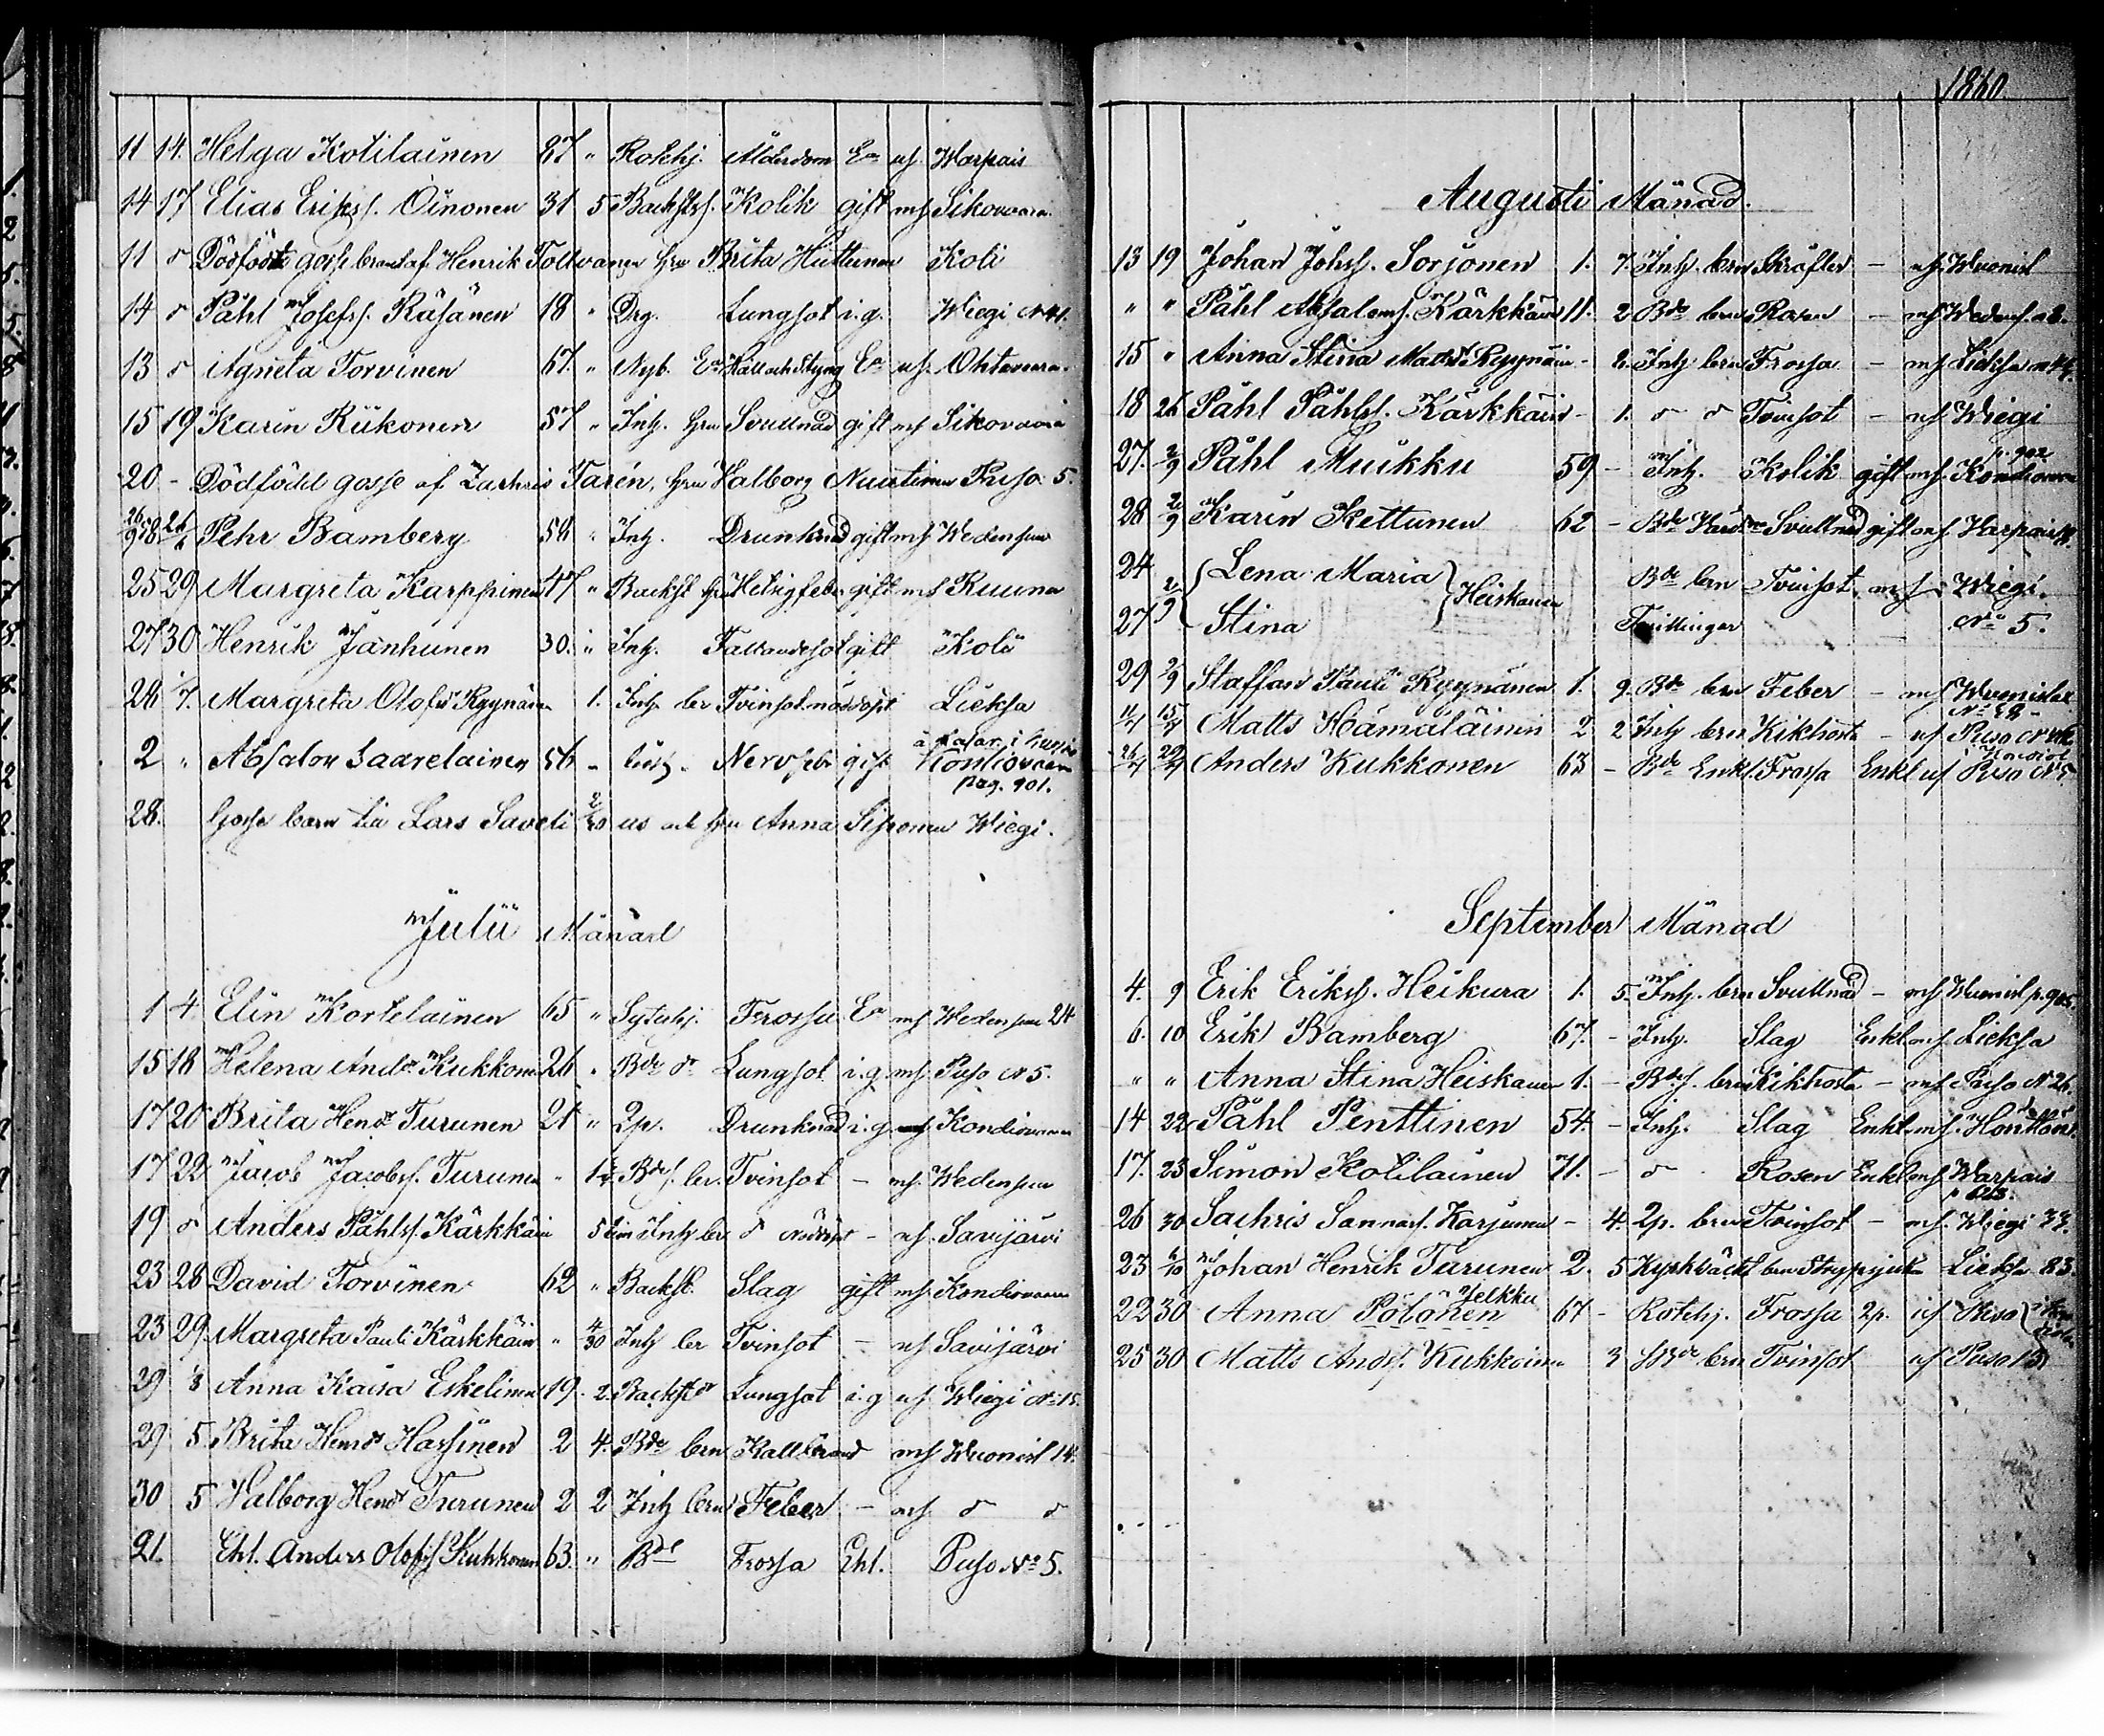 11 14. Helga Kotilainen 87 " Rotehj. Ålderdom Ea mf. Warpais
14 17 Elias Erikss. Oinonen 31 5 Backst. Kolik gift mf Sikovaara
11 d Dödfödt gosse barn af Henrik Tolvanen hru Brita Huttunen Koli
14 d Påhl Josefss. Räsänen 18 " Drg. Lungsot i.g. Wiegi N 41.
13 d Agneta Torvinen 67. " Nyb. Ea Håll och Styng Ea mf. Ohtavaara
15 19 Karin Riikonen 57 " Inh. hru Svullnad gift mf Sikovaara
20 - Dödfödd gosse af Zachris Tarén, hru Walborg Nuutinen Puso 5.
26/9 58 26/6 Pehr Bamberg 54 " Inh. Drunknad gift mf Wedensuu
25 29 Margreta Karppinen 47 " Backst hru Hetsigfeber gift mf Ruuna
27 30 Henrik Janhunen 30. " Inh. Fallandesot gift Kolu
28 1/7. Margreta Olofsdr Ryynän 1. Inh ba Tvinsot nöddöpt Lieksa
2 " Absalon Saarelainen 56 - Inh. Nervfeber gift Kontiovaara
pag. 901.
28. Gosse barn Lars Saveli us och hru Anna Sissonen Wiegi.
Julii Månad
1 4 Elin Kortelainen 65 " Sytnhj. Frossa Ea mf Wedensuu 24
15 18 Helena Andsdr Kukkonen 26 " Bde dr Lungsot i.g. mf. Puso N 5.
17 20 Brita Hensdr Turunen 21 " 2p. Drunknad i.g. mf Kondiovaara
17 22 Jacob Jacobss. Turunen " 1 Bds. ba. Tvinsot - mf. Wedensuu
19 d Anders Påhlss. Kärkkäin 5 tim Inh ba d nöddöpt - mf. Savijärvi
23 28 David Torvinen 62 " Backst. Slag gift mf. Kondiovaara
23 29 Margreta Pauli Kärkkäin " 4/30 Inh ba Tvinsot - mf Savijärvi
29 1/8 Anna Kaisa Eskelinen 19. 2. Backst dr Lungsot i.g mf Wiegi N 15.
29 5 Brita Hensdr Hassinen 2 4. Bde barn Kallbrand mf Wuonisl 14.
30 5 Walborg Hensdr Turunen 2 2 Inh barn Feber - mf. d d
21. Ehl. Anders Olofss Kukkonen 63. " Bde Frossa Ehl. Puso No 5.
1860.
Augusti Månad.
13 19 Johan Johss. Sorjonen 1. 7. Inh. barn Skråfler - mf. Wuonisl
" " Påhl Absalonss. Kärkkäin 11. 2 Bde barn Rosen - mf Wedens. 28.
15 " Anna Stina Mattsdr Ryynäin - 2. Inh barn Frossa - mf Lieksa N 44.
18 26 Påhl Påhlss. Kärkkäin - 1. d d Tvinsot - mf Wiegi
27. 2/9 Påhl Muikku 59 - Inh. Kolik gift mf. Kondiovaara p. 902
28 2/9 Karin Kettunen 62 - Bde Värdinna Svullnad gift mf. Warpais
24 2/9 { Lena Maria } Heiskanen Bde barn Tvinsot mf Wiegi.
27 Stina Tvillingar No 5.
29 2/9 Staffan Pauli Ryynänen 1. 9. Bde barn Feber - mf Wuonislax
No 38
11/7 15/7 Matts Hämäläinen 2 2 Inh barn Kikhosta - mf Puso
26/7 29/7 Anders Kukkonen 63 - Bde Enkl. Frossa Enkl mf Puso N 5.
September Månad
4. 9 Erik Erikss. Heikura 1. 5. Inh. barn Svullnad - mf Wuonisl p. 905.
6. 10 Erik Bamberg 67. - Inh. Slag Enkl mf. Lieksa
" " Anna Stina Heiskanen 1. - Bds. barn Kikhosta - mf Puso N. 26.
14 22 Påhl Penttinen 54. - Inh. Slag Enkl mf.
17. 23 Simon Kotilainen 71. - d Rosen Enkl mf Warpais
26 30 Sachris Sannas. Karjunen - 4. 2p. barn Tvinsot - mf. Wiegi 33.
23 6/10 Johan Henrik Turunen 2. 5 Kyrkväckt barn Strypsjuka Lieksa 83.
22 30 Anna Pölönen Jelkku 67 - Rotehj. Frossa 2p. if Puso
25 30 Matts Andss. Kukkoinen 3 Bde barn Tvinsot mf Puso 5